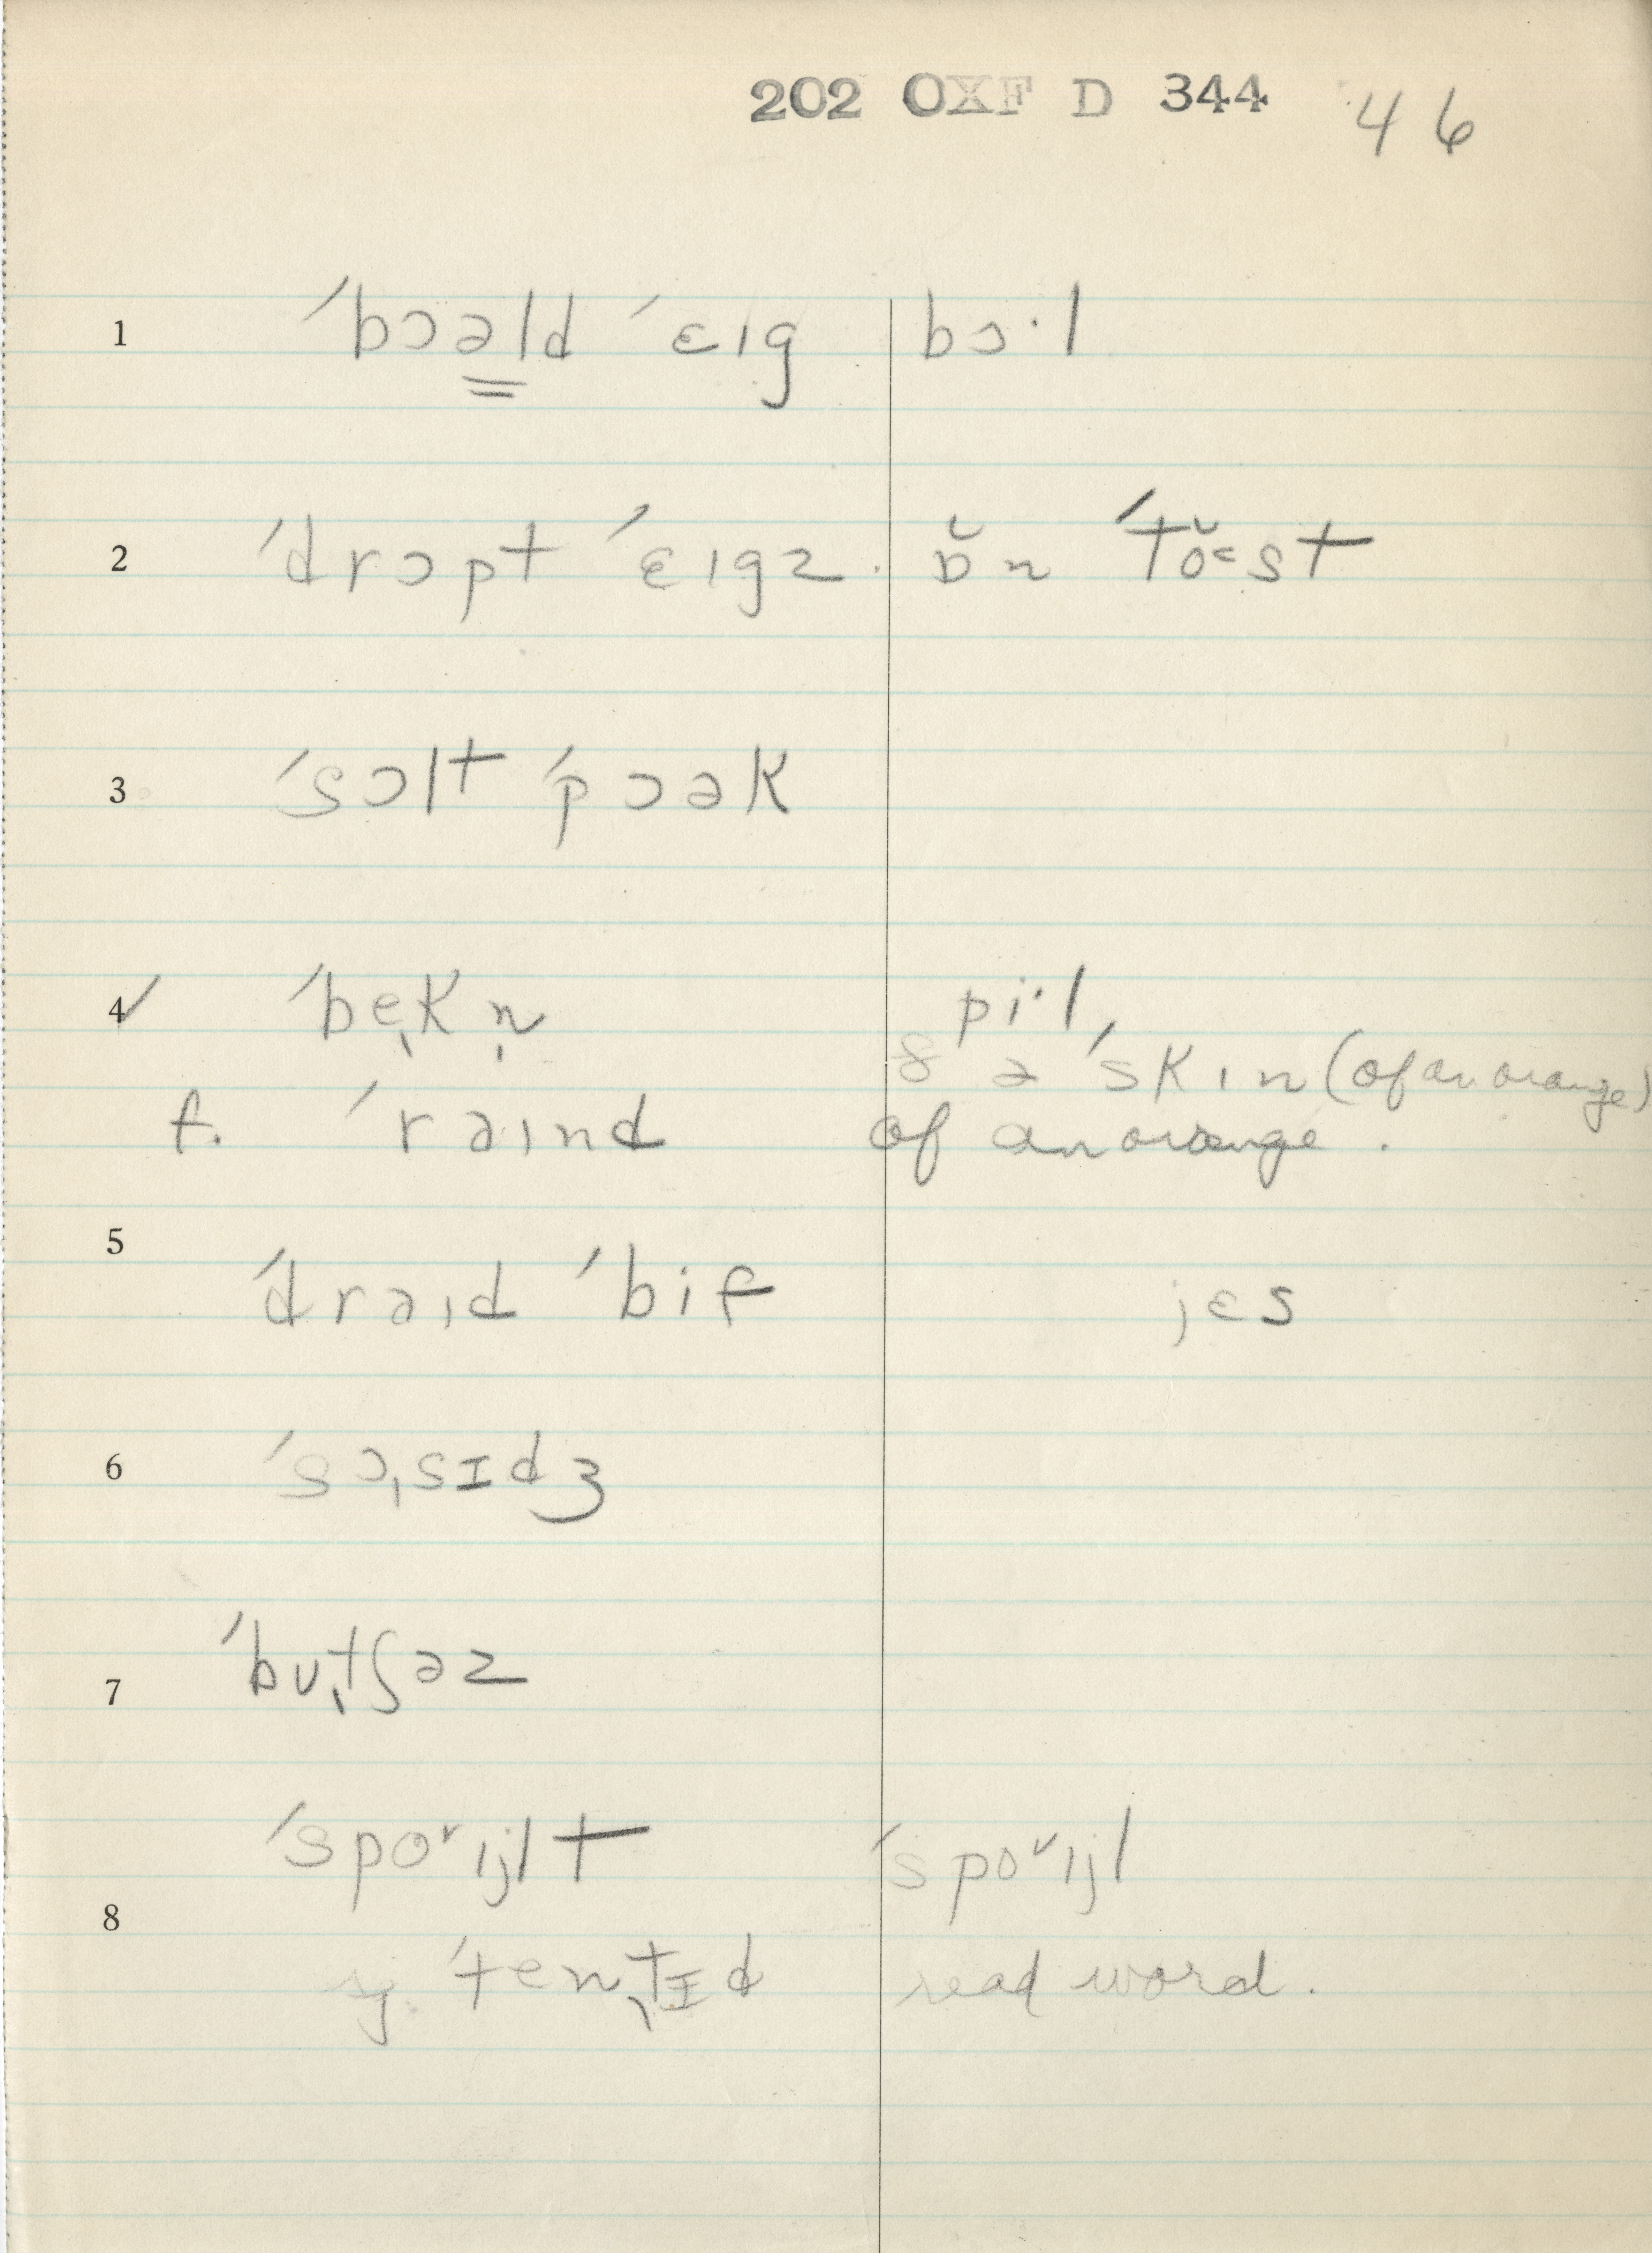 202 OXF D 344 46
1 ˈbɔəld ˈɛɪg bɔ·l
2 ˈdrɔpt ˈɛɪgz. ɒ̆n ˈtŏ˂st
3 ˈsɔlt ˈpɔək
4 ✓ ˈbeˌkn̩ pi·l,
ə ˈskɪn (of an orange)
f. ˈraɪnd of an orange.
5 ˈdraɪd ˈbif jɛs
6 ˈsɔˌsɪdʒ
7 ˈbuˌtʃəz
8 ˈspoˇɪjlt ˈspoˇɪjl
y. ˈtenˌtɪd read word.